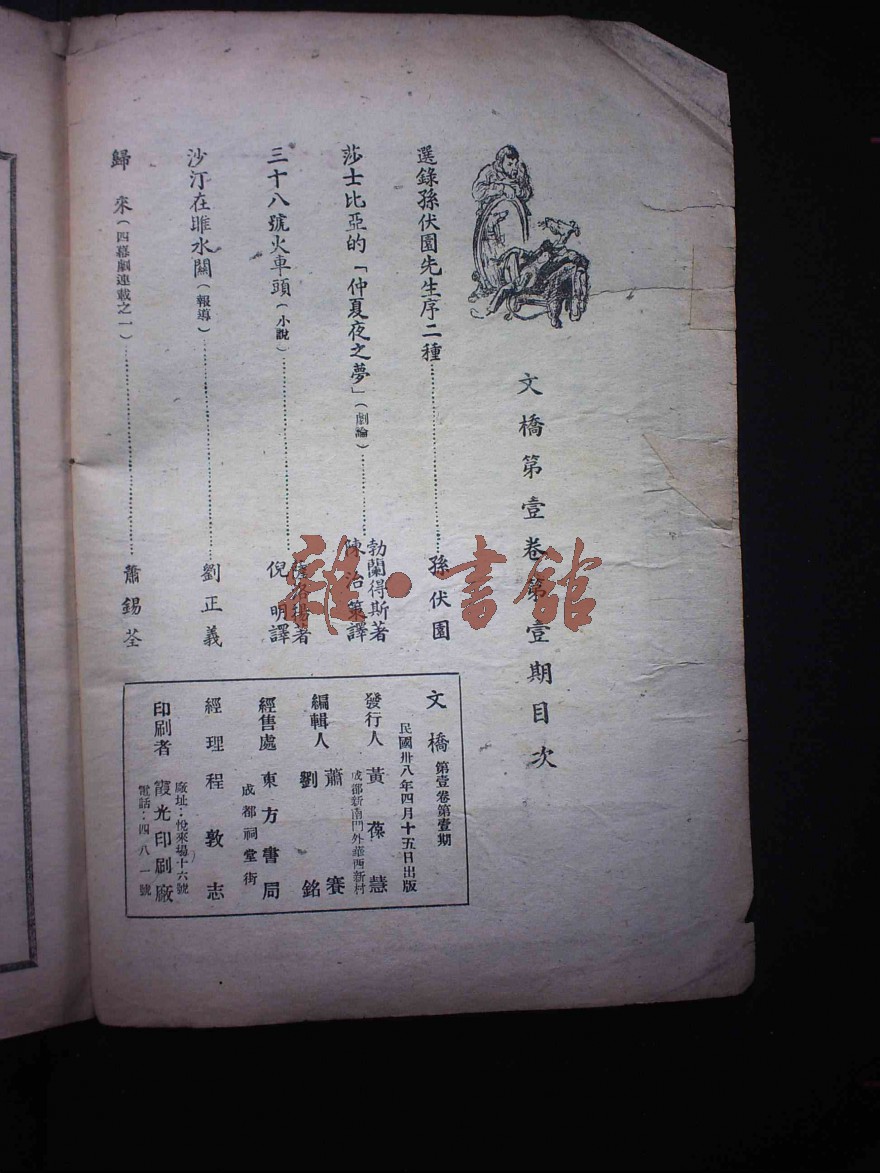 文橋第壹卷第壹期目次
選錄孫伏園先生序二種 孫伏園
莎士比亞的「仲夏夜之夢」(劇論) 勃蘭得斯著
陳治策譯
三十八號火車頭(小說) 著
倪明譯
沙汀在雎水關(報導) 劉正義
歸來(四幕劇連載之一) 蕭錫荃
文橋 第壹卷第壹期
民國卅八年四月十五日出版
發行人 黃葆慧
成都新南門外華西新村
編輯人 蕭賽
劉銘
經售處 東方書局
成都祠堂街
經理 程敦志
印刷者 霞光印刷廠
廠址:悅來場十六號
電話:四八一號
雜·書館